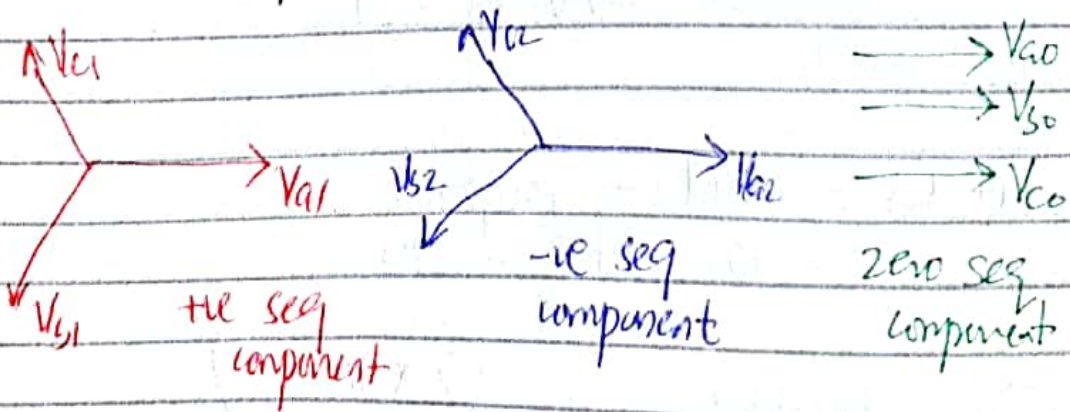 Vc1
Va1
Vb1
+ve seq
component
Vc2
Vb2
Va2
-ve seq
component
Va0
Vb0
Vc0
zero seq
component